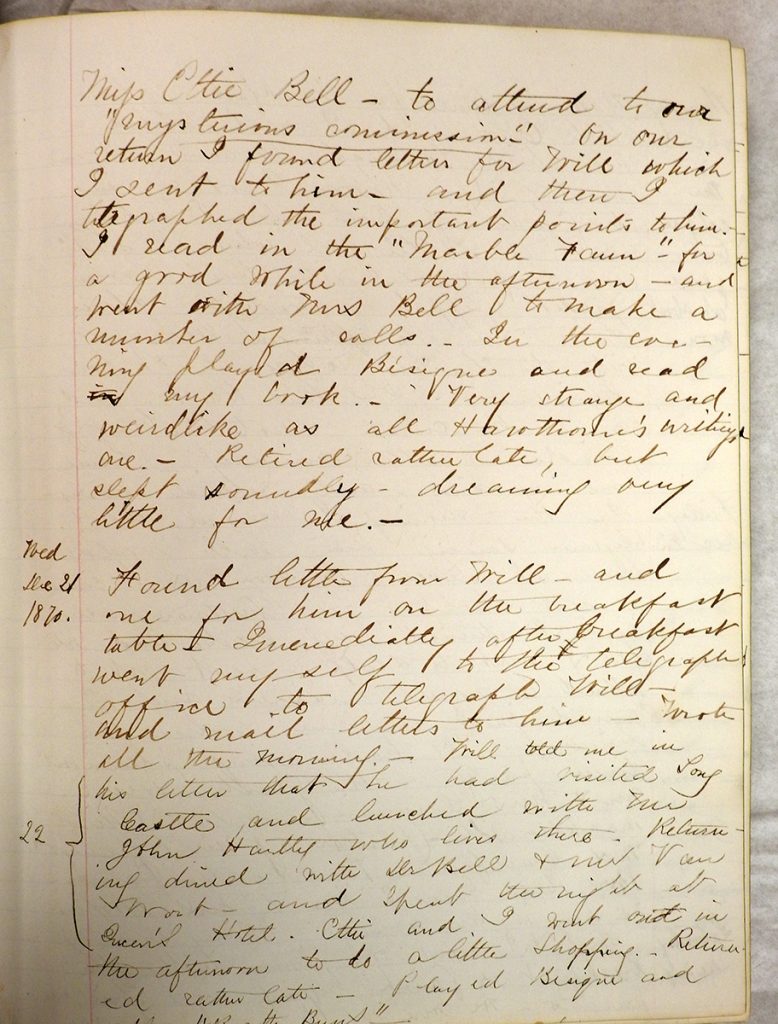 Miss Ottie Bell - to attend to our
"mysterious commission" On our
return I found letter for Will which
I sent to him - and then I
telegraphed the important points to him. -
I read in the "Marble Faun" - for
a good while in the afternoon - and
went with Mrs Bell to make a
number of calls. - In the eve-
ning played Bésique and read
in my book. - Very strange and
weirdlike as all Hawthorne's writings
are. - Retired rather late, but
slept soundly - dreaming very
little for me. -
Wed
Dec 21
1870.
Found letter from Will - and
one for him on the breakfast
table - Immediately after breakfast
went myself to the telegraph
office to telegraph Will -
and mail letters to him - Wrote
all the morning. - Will told me in
his letter that he had visited
Castle and lunched with Mr
22
John Hartley who lives there. Return-
ing dined with Dr Bell & Van
- and spent the night at
Queen's Hotel. Ottie and I went out in
the afternoon to do a little shopping. - Return-
ed rather late - Played Bésique and